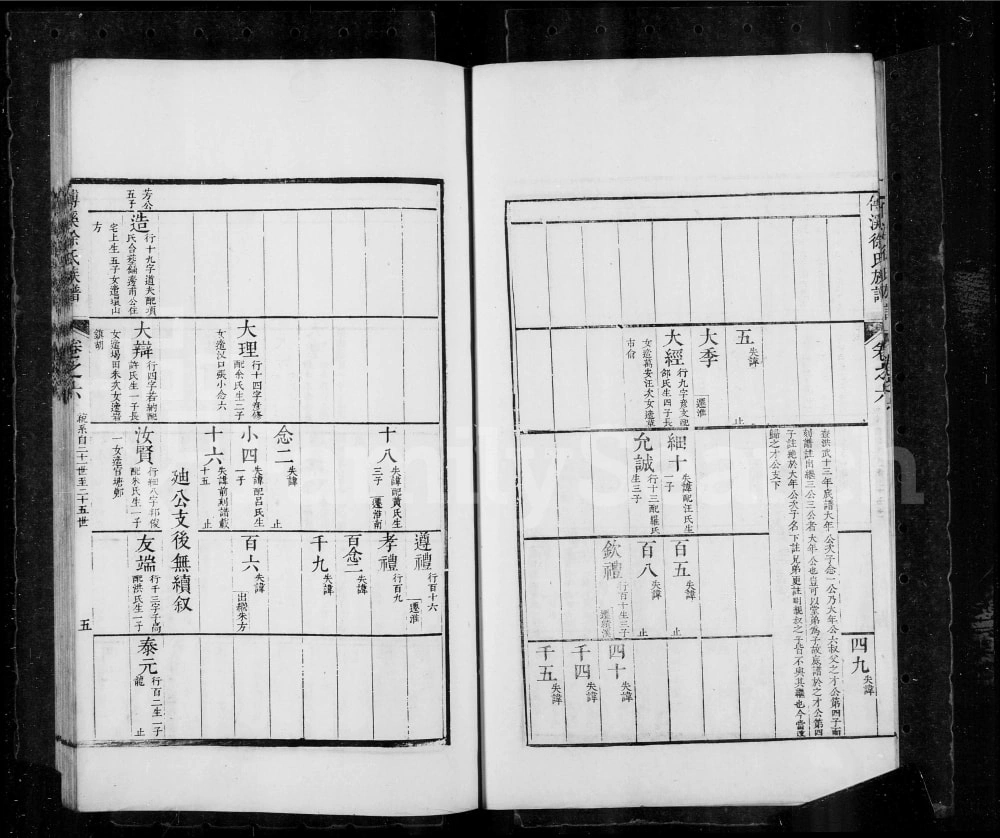 傅溪徐氏族譜
卷之六
四九 失諱
查洪武十三年底譜大年公次子念一公乃大年公六叔父之才公第四子南
刻譜註出繼三公三公者大年公也豈可以堂弟為子故底譜於之才公第四
子註絶於大年公次子名下註兄弟更註則親叔之子皆不與其繼也今當復
歸之才公支下
五 失諱
止
大季
遷淮
大經 行九字彥文配
邰氏生四子長
女適葛安汪次女適葉
市俞
細十 失諱配汪氏生
一子
允誠 行十三配羅氏
生三子
百五 失諱
止
百八 失諱
止
欽禮 行百十生三子
四十 失諱
千四 失諱
千五 失諱
芳公
五子
造 行十九字道夫配項
宅上生五子女適環山
方
大理 行十四字彥修
配余氏生二子
女適汊口張小念六
大辯 行四字若納配
許氏生一子長
女適場田朱次女適岩
鎮胡
十八 失諱配黃氏生
三子
遷淮南
念二 失諱
止
小四 失諱配呂氏生
一子
十六 失諱前刻譜載
十五
止
廸公支後無續叙
汝賢 行細八字邦俊
配朱氏生一子
一女適官塘鄭
遵禮 行百十六
遷淮
孝禮 行百九
百念二 失諱
千九 失諱
百六 失諱
出繼朱方
友端 行千三字子高
配洪氏生一子
泰元 行百二生一子
龍
止
傅溪徐氏族譜
卷之六
統系自二十一世至二十五世
五